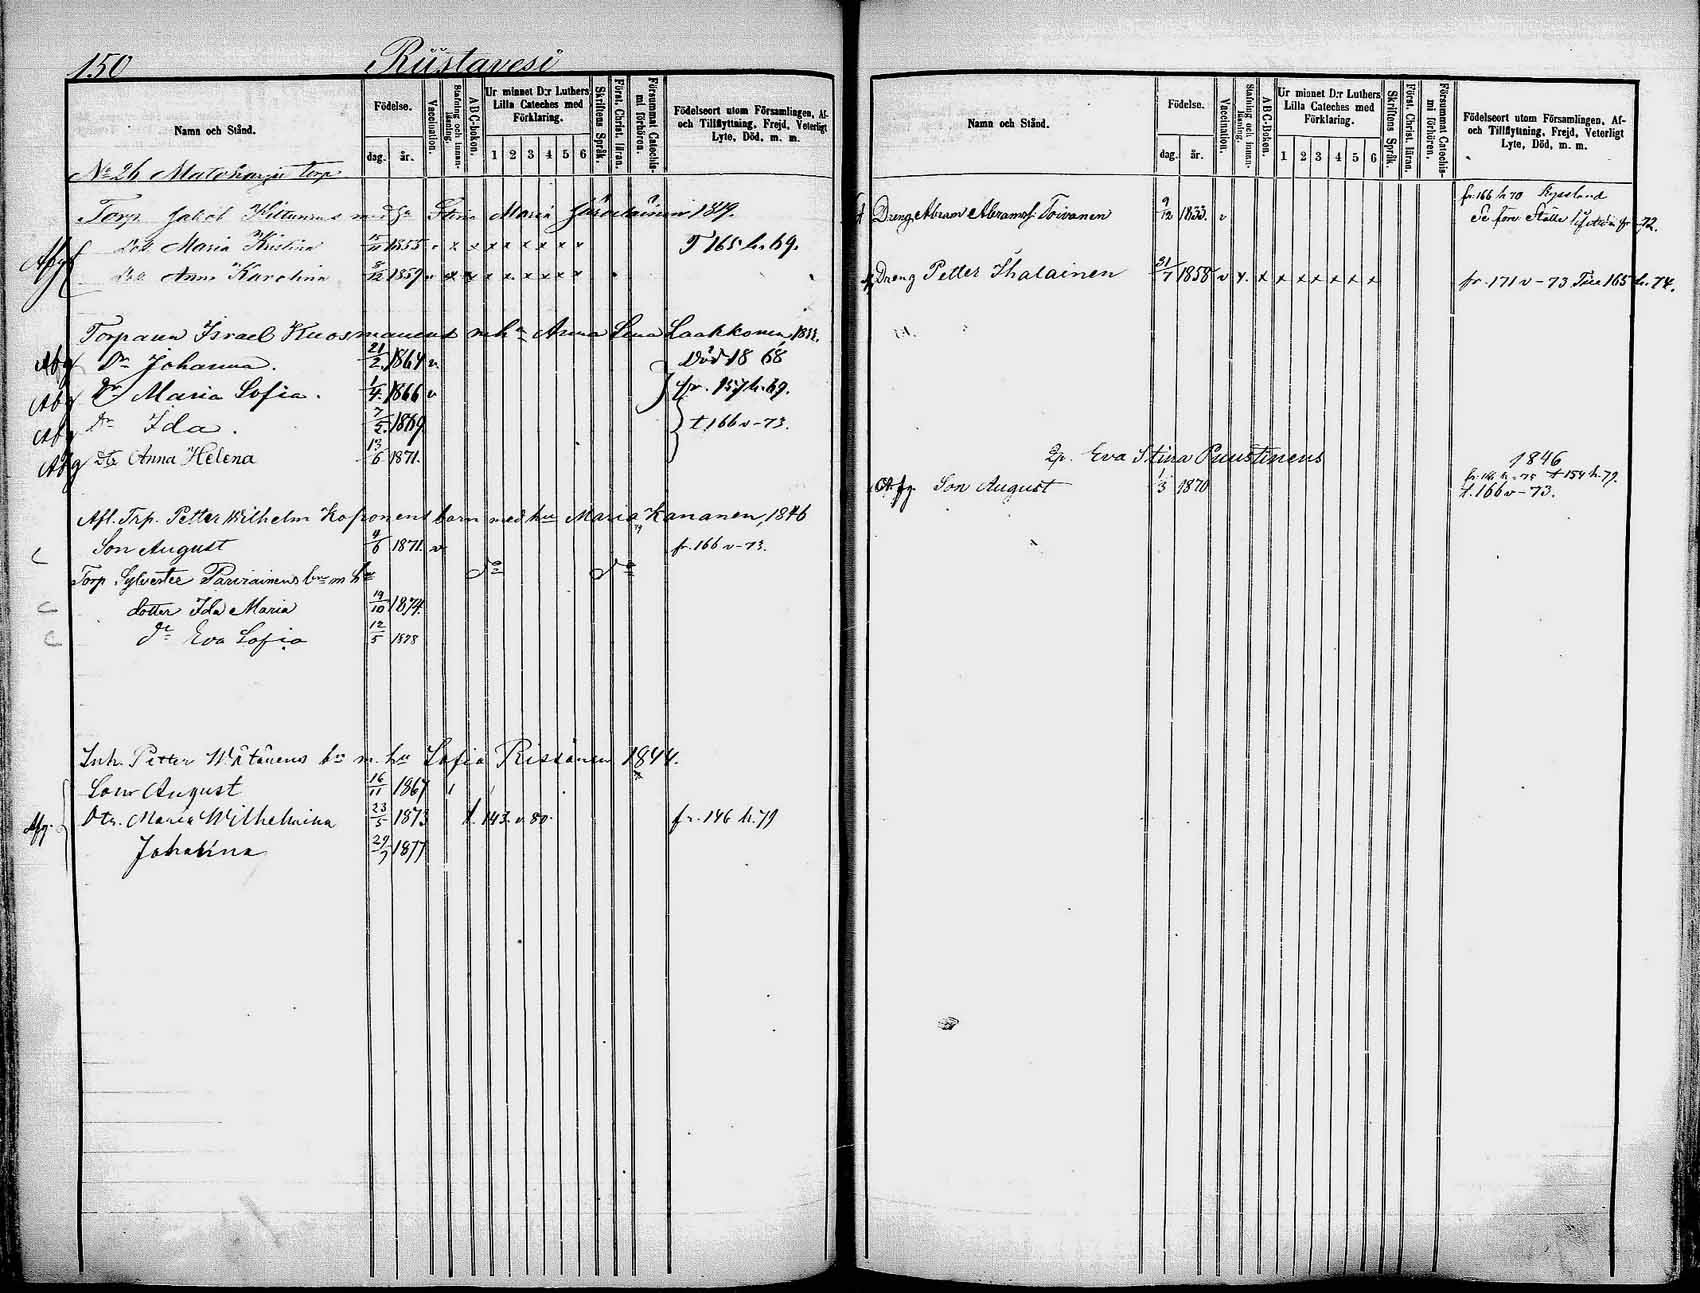 150 Riistavesi
Namn och Stånd.
Födelse.
dag. år.
Vaccination.
Stafning och innanläsning.
ABC-boken.
Ur minnet D:r Luthers Lilla Cateches med Förklaring.
1 2 3 4 5 6
Skriftens Språk.
Först. Christ. läran.
Försummat Catechismi förhören.
Födelseort utom Församlingen, Af- och Tillflyttning, Frejd, Veterligt Lyte, Död, m. m.
No 26 torp
Torp. Jakob Stina Maria
Maria Kristina 1855 v x x x x x x x x T 165 h. 69.
Anna Karolina 8/12 1859 v x x x x x x x x
Torparen Israel Kuosmanens m hu Anna Lena Laakkonen, 18
Afg Dr Johanna. 21/2 1864 v Död 18 68
Afg Dr Maria Sofia. 1/4 1866 v fr. 157 h. 69.
Afg Dr Ida. 7/2 1869 t 166 v - 73.
Afg Dtr Anna Helena 13/6 1871.
Afl. Trp. Petter Wilhelm Koponens barn med hu Maria Kananen, 1846
Son August 4/6 1871. v fr. 166 v - 73.
Torp. Sylvester Parviainens bn m hu do do
dotter Ida Maria 19/10 1874.
do Eva Sofia 12/5 1878
Inh. Petter Wätänens bn m. hu Sofia Rissanen 1844.
Son August 16/11 1867
Afg. Dtr. Maria Wilhelmina 23/5 1873 t. 143. v. 80. fr. 146 h. 79
Johanna 29/7 1877
Namn och Stånd.
Födelse.
dag. år.
Vaccination.
Stafning och innanläsning.
ABC-Boken.
Ur minnet D:r Luthers Lilla Cateches med Förklaring.
1 2 3 4 5 6
Skriftens Språk.
Först. Christ. läran.
Försummat Catechismi förhören.
Födelseort utom Församlingen, Af- och Tillflyttning, Frejd, Veterligt Lyte, Död, m. m.
fr. 166 h 70 Ryssland
Dreng Abram Abramsf. Toivanen 9/12 1853. v
Dreng Petter Ihalainen 21/7 1858 v x x x x x x x x fr. 171 v - 73 165 h. 74.
Eva Stina Puustinens 1846
Afg Son August 1/3 1870 t. 166 v - 73.